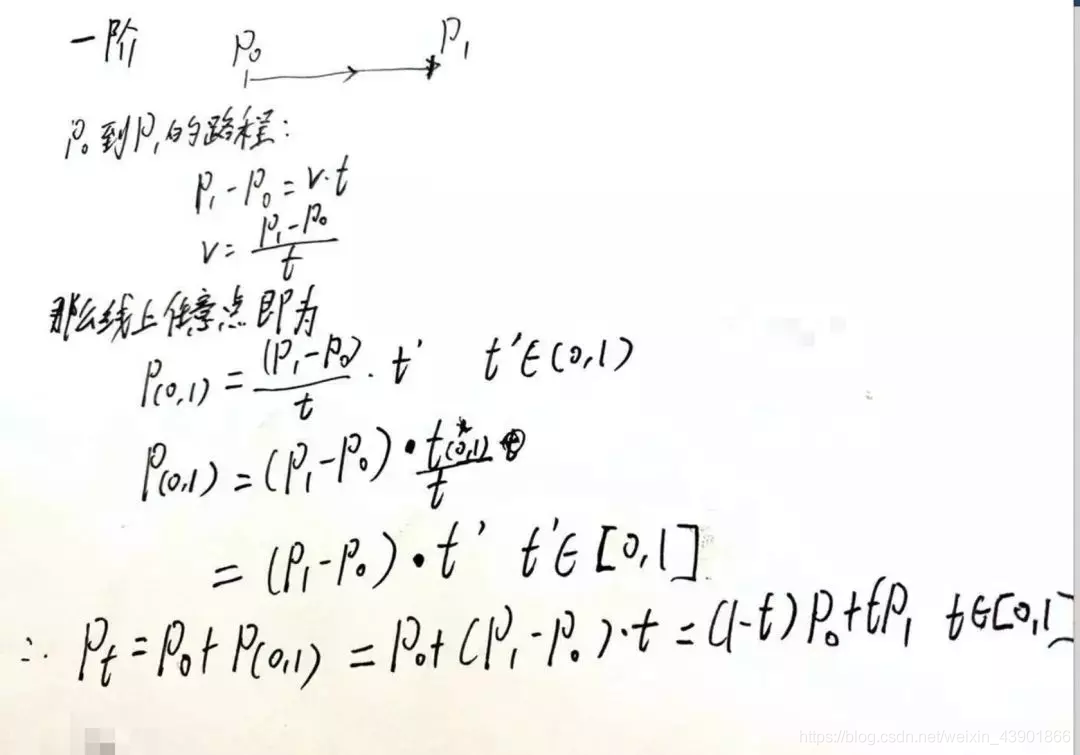 一阶 P₀ P₁
P₀到P₁的路程:
P₁-P₀=v·t
v=\frac{P₁-P₀}{t}
那么线上任意点即为
P(0,1)=\frac{(P₁-P₀)}{t}·t' t'∈(0,1)
P(0,1)=(P₁-P₀)·\frac{t(0,1)}{t}
=(P₁-P₀)·t' t'∈[0,1]
∴ Pt=P₀+P(0,1)=P₀+(P₁-P₀)·t=(1-t)P₀+tP₁ t∈[0,1]
https://blog.csdn.net/weixin_43901866